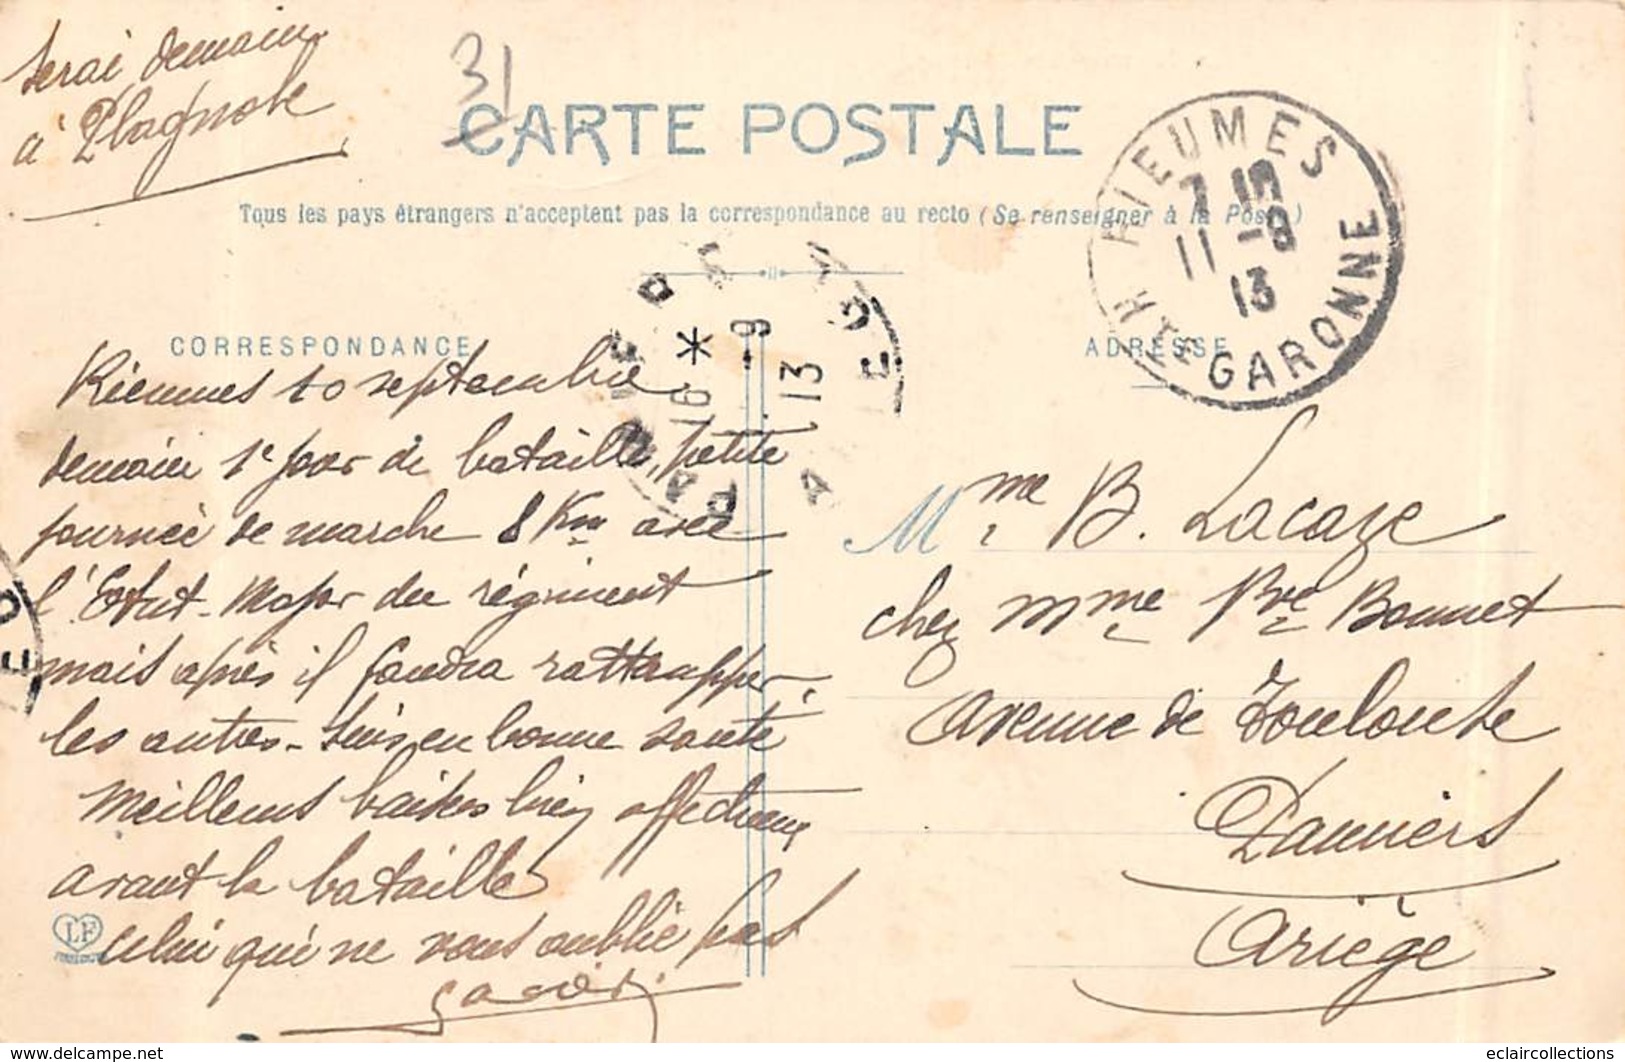 Serai demain
à Plagnole
31
CARTE POSTALE
Tous les pays étrangers n'acceptent pas la correspondance au recto (Se renseigner à la Poste)
RIEUMES
7 10
11 -9
13
HTE GARONNE
CORRESPONDANCE
ADRESSE
PAMIERS
16 * -9 13
ARIEGE
Rieumes 10 septembre
demain 1e jour de bataille, petite
journée de marche 8 Km avec
l'Etat-Major du régiment
mais après il faudra rattrapper
les autres - Suis en bonne santé
Meilleurs baisers bien affectueux
avant la bataille
celui qui ne vous oublie pas
Mme B. Lacaze
chez Mme Vve Bonnet
Avenue de Toulouse
Pamiers
Ariège
LF
www.delcampe.net
eclaircollections